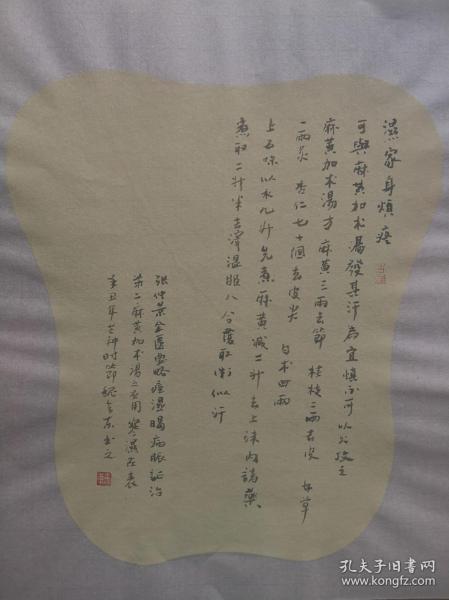 濕家身煩疼
可與麻黄加术湯發其汗為宜慎不可以火攻之
麻黄加术湯方 麻黄三两去節 桂枝二两去皮 甘草
一两炙 杏仁七十個去皮尖 白术四兩
上五味以水九升先煮麻黄减二升去上沫内諸藥
煮取二升半去滓温服八合覆取微似汗
張仲景金匱要略痙濕暍病脈証治
第二麻黄加术湯之应用寒濕在表
辛丑年芒种时節
孔夫子旧书网
www.kongfz.com